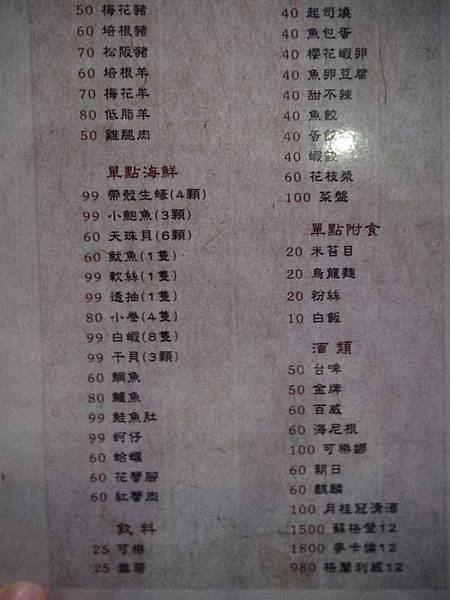 50 梅花豬
60 培根豬
70 松阪豬
60 培根羊
70 梅花羊
80 低脂羊
50 雞腿肉
單點海鮮
99 帶殼生蠔(4顆)
99 小鮑魚(3顆)
60 天珠貝(6顆)
60 魷魚(1隻)
99 軟絲(1隻)
99 透抽(1隻)
80 小卷(4隻)
99 白蝦(8隻)
99 干貝(3顆)
60 鯛魚
80 鱸魚
99 鮭魚肚
99 蚵仔
60 蛤蠣
60 花蟹腳
60 紅蟹肉
飲料
25 可樂
25 雪碧
40 起司燒
40 魚包蛋
40 櫻花蝦卵
40 魚卵豆腐
40 甜不辣
40 魚餃
40 蛋餃
40 蝦餃
60 花枝漿
100 菜盤
單點附食
20 米苔目
20 烏龍麵
20 粉絲
10 白飯
酒類
50 台啤
50 金牌
60 百威
60 海尼根
100 可樂娜
60 朝日
60 麒麟
100 月桂冠清酒
1500 蘇格登12
1800 麥卡倫12
980 格蘭利威12